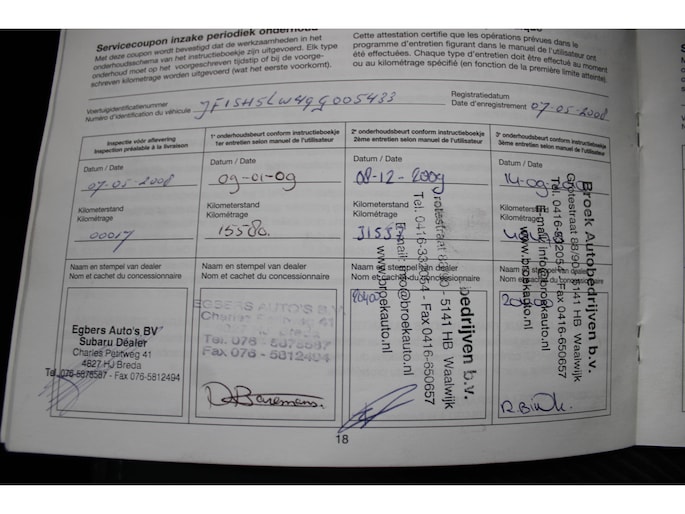 Servicecoupon inzake periodiek onderhoud
Met deze coupon wordt bevestigd dat de werkzaamheden in het
onderhoudsschema van het instructieboekje zijn uitgevoerd. Elk type
onderhoud moet op het voorgeschreven tijdstip of bij de voorge-
schreven kilometrage worden uitgevoerd (wat het eerste voorkomt).
Cette attestation certifie que les opérations prévues dans le
programme d'entretien figurant dans le manuel de l'utilisateur ont
été effectuées. Chaque type d'entretien doit être effectué au moment
ou au kilométrage spécifié (en fonction de la première limite atteinte).
Voertuigidentificatienummer
Numéro d'identification du véhicule JF1SH5LW49G005433
Registratiedatum
Date d'enregistrement 07-05-2008
Inspectie vóór aflevering
Inspection préalable à la livraison
Datum / Date
07-05-2008
Kilometerstand
Kilométrage
00017
Naam en stempel van dealer
Nom et cachet du concessionnaire
Egbers Auto's BV
Subaru Dealer
Charles Petitweg 41
4827 HJ Breda
Tel. 076-5878587 - Fax 076-5812494
1e onderhoudsbeurt conform instructieboekje
1er entretien selon manuel de l'utilisateur
Datum / Date
09-01-09
Kilometerstand
Kilométrage
15580
Naam en stempel van dealer
Nom et cachet du concessionnaire
EGBERS AUTO'S B.V.
Charles Petitweg 41
Fax 076 - 5812494
2e onderhoudsbeurt conform instructieboekje
2ème entretien selon manuel de l'utilisateur
Datum / Date
08-12-2009
Kilometerstand
Kilométrage
Naam en stempel van dealer
Nom et cachet du concessionnaire
bedrijven b.v.
- 5141 HB Waalwijk
- Fax 0416-650657
E-mail: info@broekauto.nl
www.broekauto.nl
3e onderhoudsbeurt conform instructieboekje
3ème entretien selon manuel de l'utilisateur
Datum / Date
Kilometerstand
Kilométrage
Naam en stempel van dealer
Nom et cachet du concessionnaire
Broek Autobedrijven b.v.
- 5141 HB Waalwijk
- Fax 0416-650657
E-mail: info@broekauto.nl
www.broekauto.nl
18